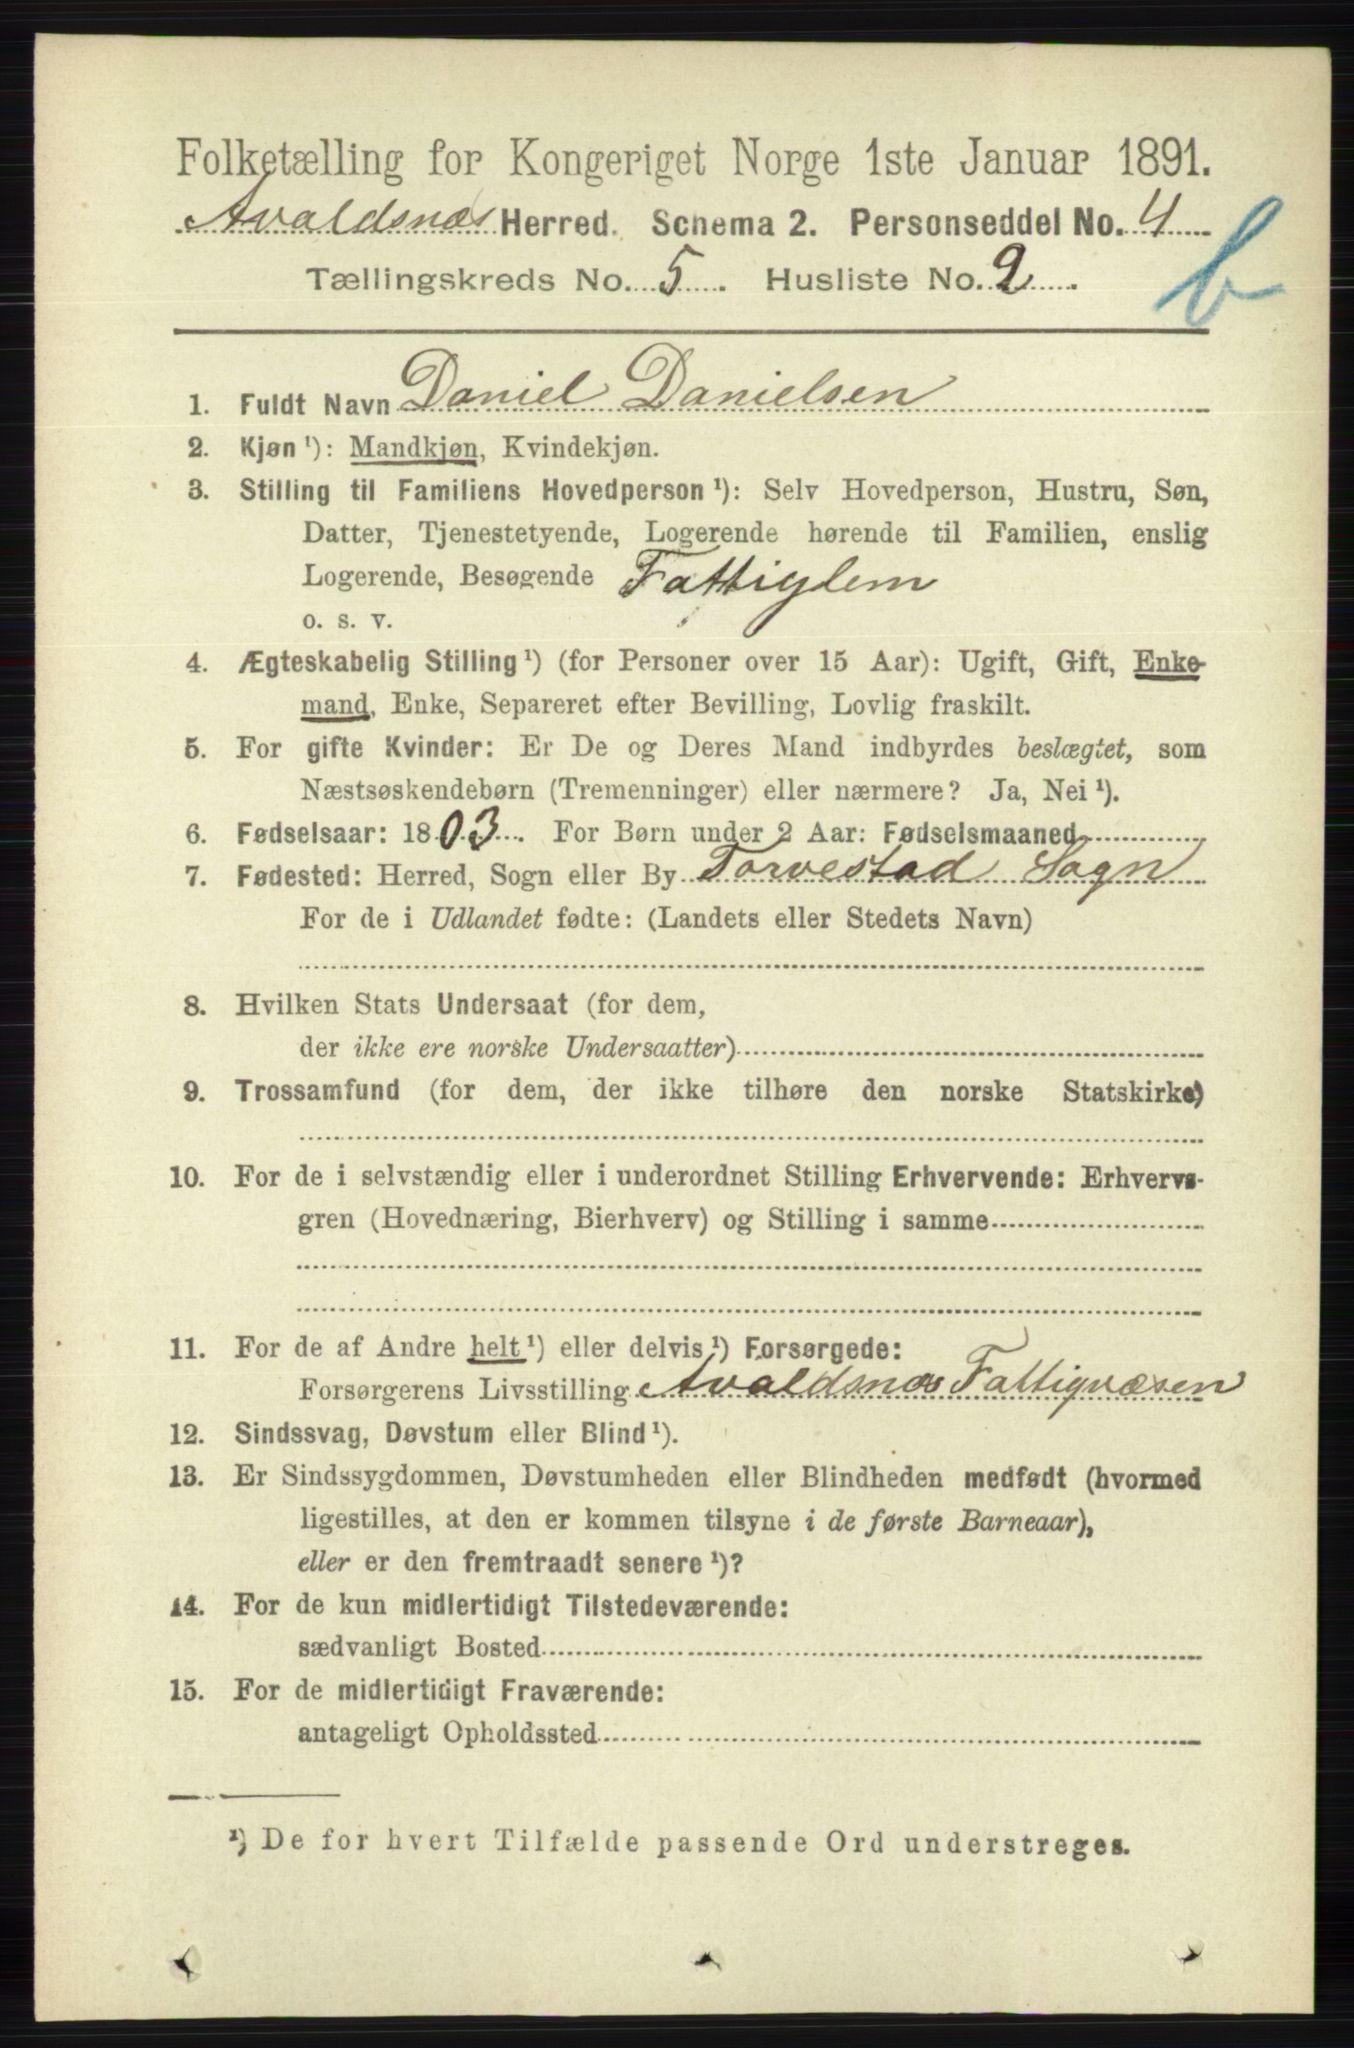 Folketælling for Kongeriget Norge 1ste Januar 1891.
Avaldsnæs Herred. Schema 2. Personseddel No. 4
Tællingskreds No. 5. Husliste No. 2. b
1. Fuldt Navn Daniel Danielsen
2. Kjøn ¹): Mandkjøn, Kvindekjøn.
3. Stilling til Familiens Hovedperson ¹): Selv Hovedperson, Hustru, Søn,
Datter, Tjenestetyende, Logerende hørende til Familien, enslig
Logerende, Besøgende Fattiglem
o. s. v.
4. Ægteskabelig Stilling ¹) (for Personer over 15 Aar): Ugift, Gift, Enke-
mand, Enke, Separeret efter Bevilling, Lovlig fraskilt.
5. For gifte Kvinder: Er De og Deres Mand indbyrdes beslægtet, som
Næstsøskendebørn (Tremenninger) eller nærmere? Ja, Nei ¹).
6. Fødselsaar: 1803. For Børn under 2 Aar: Fødselsmaaned
7. Fødested: Herred, Sogn eller By Torvestad Sogn
For de i Udlandet fødte: (Landets eller Stedets Navn)
8. Hvilken Stats Undersaat (for dem,
der ikke ere norske Undersaatter)
9. Trossamfund (for dem, der ikke tilhøre den norske Statskirke)
10. For de i selvstændig eller i underordnet Stilling Erhvervende: Erhvervs-
gren (Hovednæring, Bierhverv) og Stilling i samme
11. For de af Andre helt ¹) eller delvis ¹) Forsørgede:
Forsørgerens Livsstilling Avaldsnæs Fattigvæsen
12. Sindssvag, Døvstum eller Blind ¹).
13. Er Sindssygdommen, Døvstumheden eller Blindheden medfødt (hvormed
ligestilles, at den er kommen tilsyne i de første Barneaar),
eller er den fremtraadt senere ¹)?
14. For de kun midlertidigt Tilstedeværende:
sædvanligt Bosted
15. For de midlertidigt Fraværende:
antageligt Opholdssted
¹) De for hvert Tilfælde passende Ord understreges.